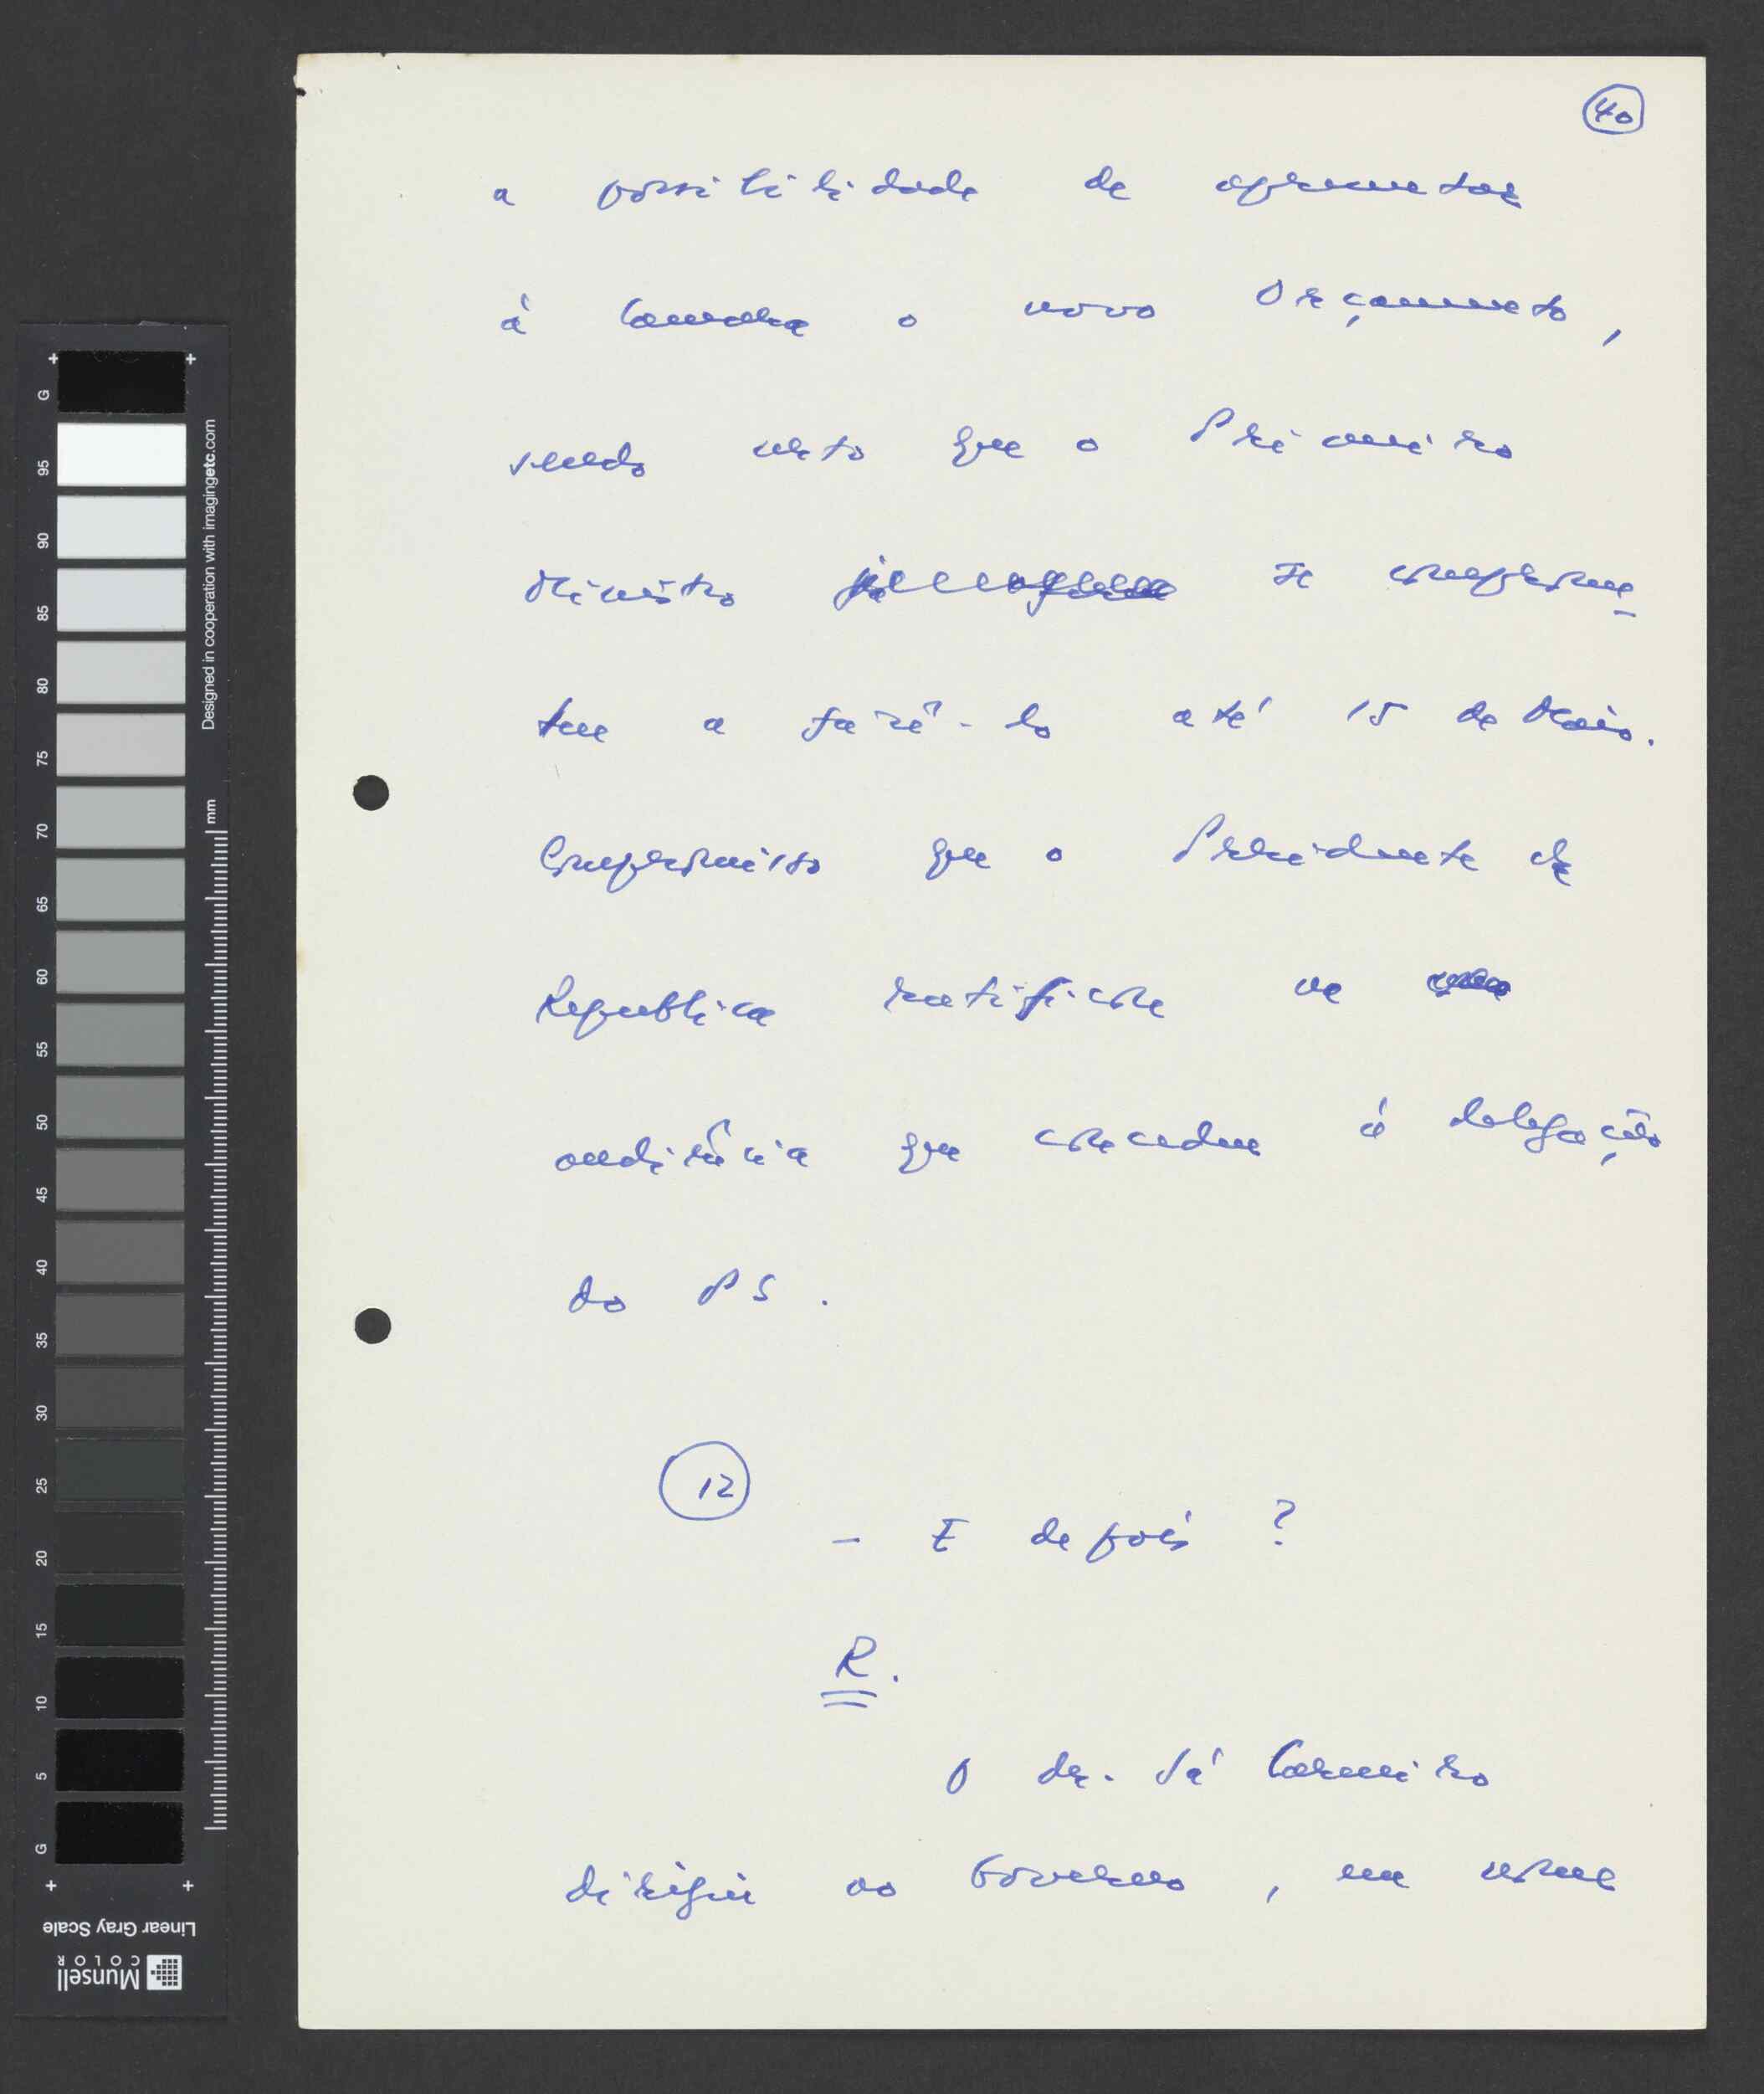 40
a possibilidade de apresentar
à Camara o novo Orçamento,
sendo certo que o Primeiro
Ministro se comprome-
teu a fazê-lo até 15 de Maio.
Compromisso que o Presidente da
Republica ratificou na
audiência que concedeu à delegação
do PS.
12
- E depois?
R.
O dr. Sá Carneiro
dirigiu ao Governo, em nome
G 95 90 85 80 75 70 65 60 55 50 45 40 35 30 25 20 15 10 5 G
Designed in cooperation with imagingetc.com
mm
Linear Gray Scale
Munsell
COLOR